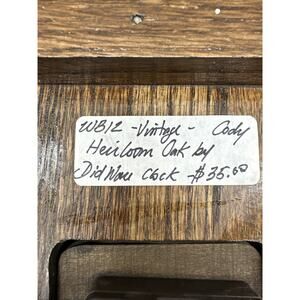 WB12 - Vintage - Cody
Heirloom Oak by
Clock - $35.00